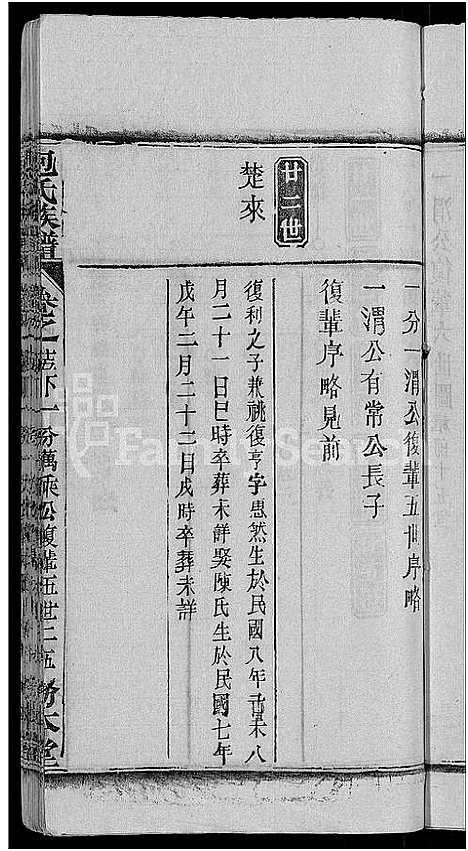 一分一渭公復輩五世序略
一渭公有常公長子
復輩序略見前
廿二世
楚來
復利之子兼祧復亨字愚然生於民國八年己未八
月二十一日巳時卒葬未詳娶陳氏生於民國七年
戊午二月二十二日戌時卒葬未詳
包氏族譜
卷之
下一分萬乘公復輩五世二五
堂
FamilySearch